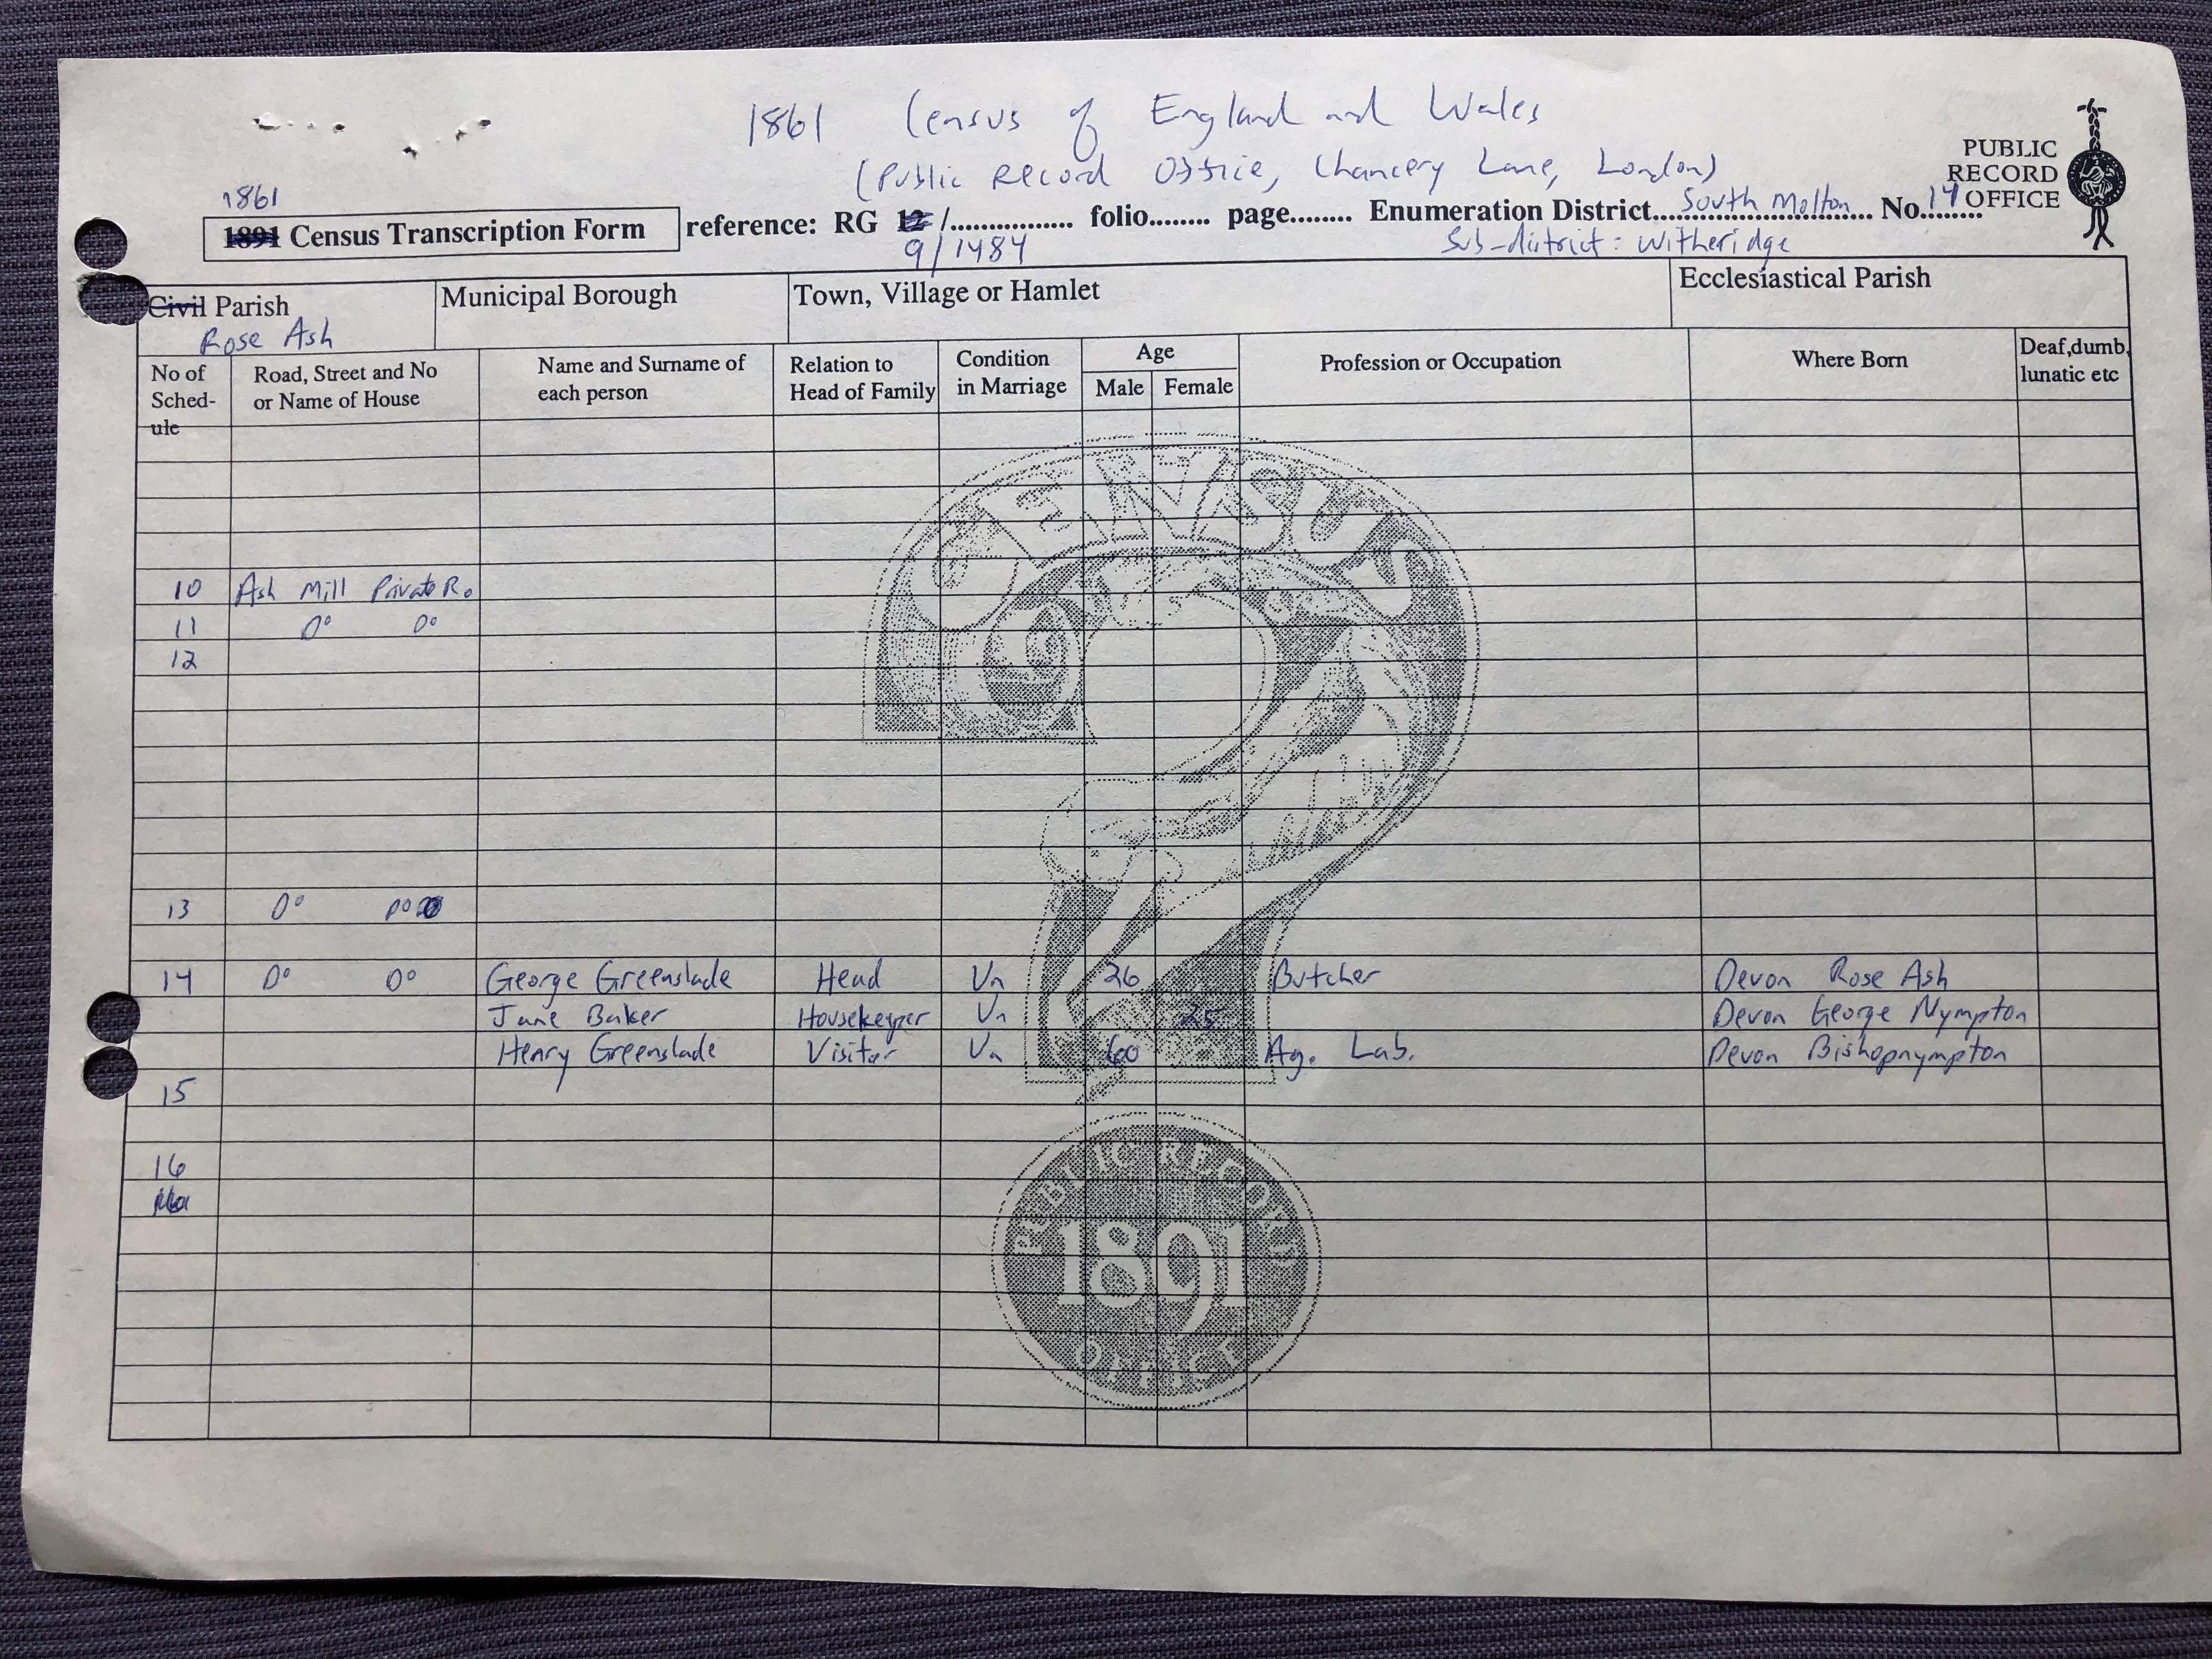 1861 Census of England and Wales
(Public Record Office, Chancery Lane, London)
PUBLIC
RECORD
OFFICE
1861
1891 Census Transcription Form reference: RG 12 /................ folio........ page........ Enumeration District South Molton No. 14
9/1484 Sub-district: Witheridge
Civil Parish Municipal Borough Town, Village or Hamlet Ecclesiastical Parish
Rose Ash
No of Sched-ule Road, Street and No or Name of House Name and Surname of each person Relation to Head of Family Condition in Marriage Age Male Female Profession or Occupation Where Born Deaf,dumb, lunatic etc
CENSUS
10 Ash Mill Private Ro
11 Do Do
12
13 Do Do
14 Do Do George Greenslade Head Un 26 Butcher Devon Rose Ash
Jane Baker Housekeeper Un 25 Devon George Nympton
Henry Greenslade Visitor Un 60 Ag. Lab. Devon Bishopnympton
15
16
PUBLIC RECORD
1891
OFFICE